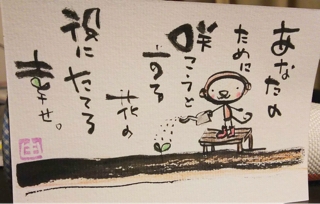 あなたの
ために
咲こうと
する
花の
役にたてる
幸せ。